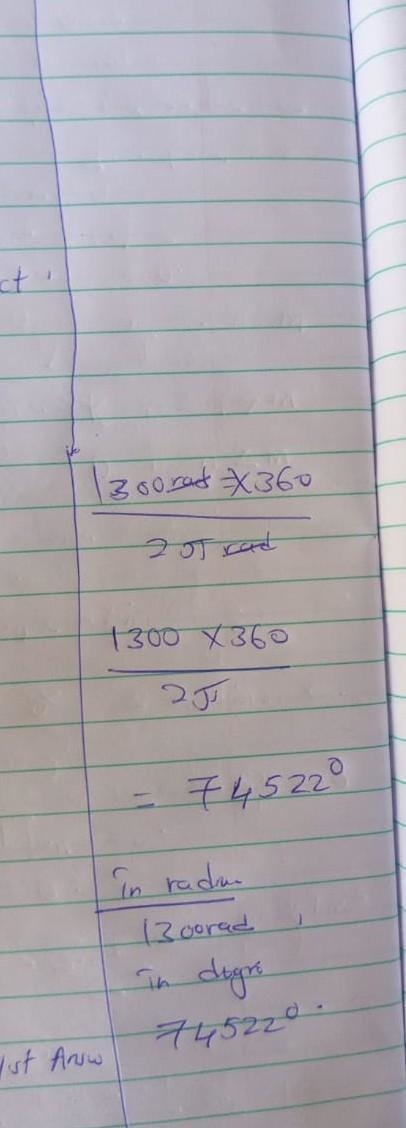 ct.
1300rad × 360
2π rad
1300 × 360
2π
= 74522°
in radian
1300rad,
in degre
74522°.
1st Answ